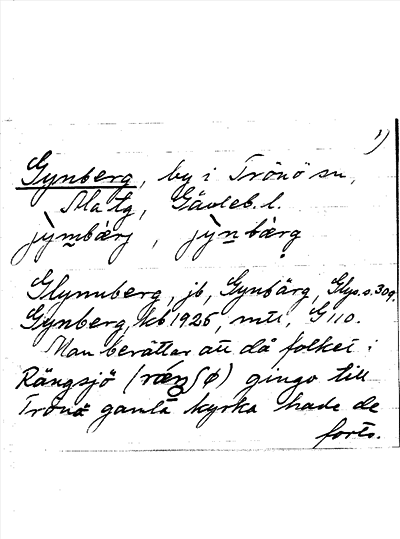 1)
Gynberg, by i Trönö sn,
Ala tg, Gävleb. l.
jỳmbærj, jỳnbærg
Glynnberg, jb, Gynbärg, Glys. s. 309.
Gynberg, kb 1926, mtl, G 110.
Man berättar att då folket i
Rängsjö (ræŋʃø) gingo till
Trönö gamla kyrka hade de
forts.